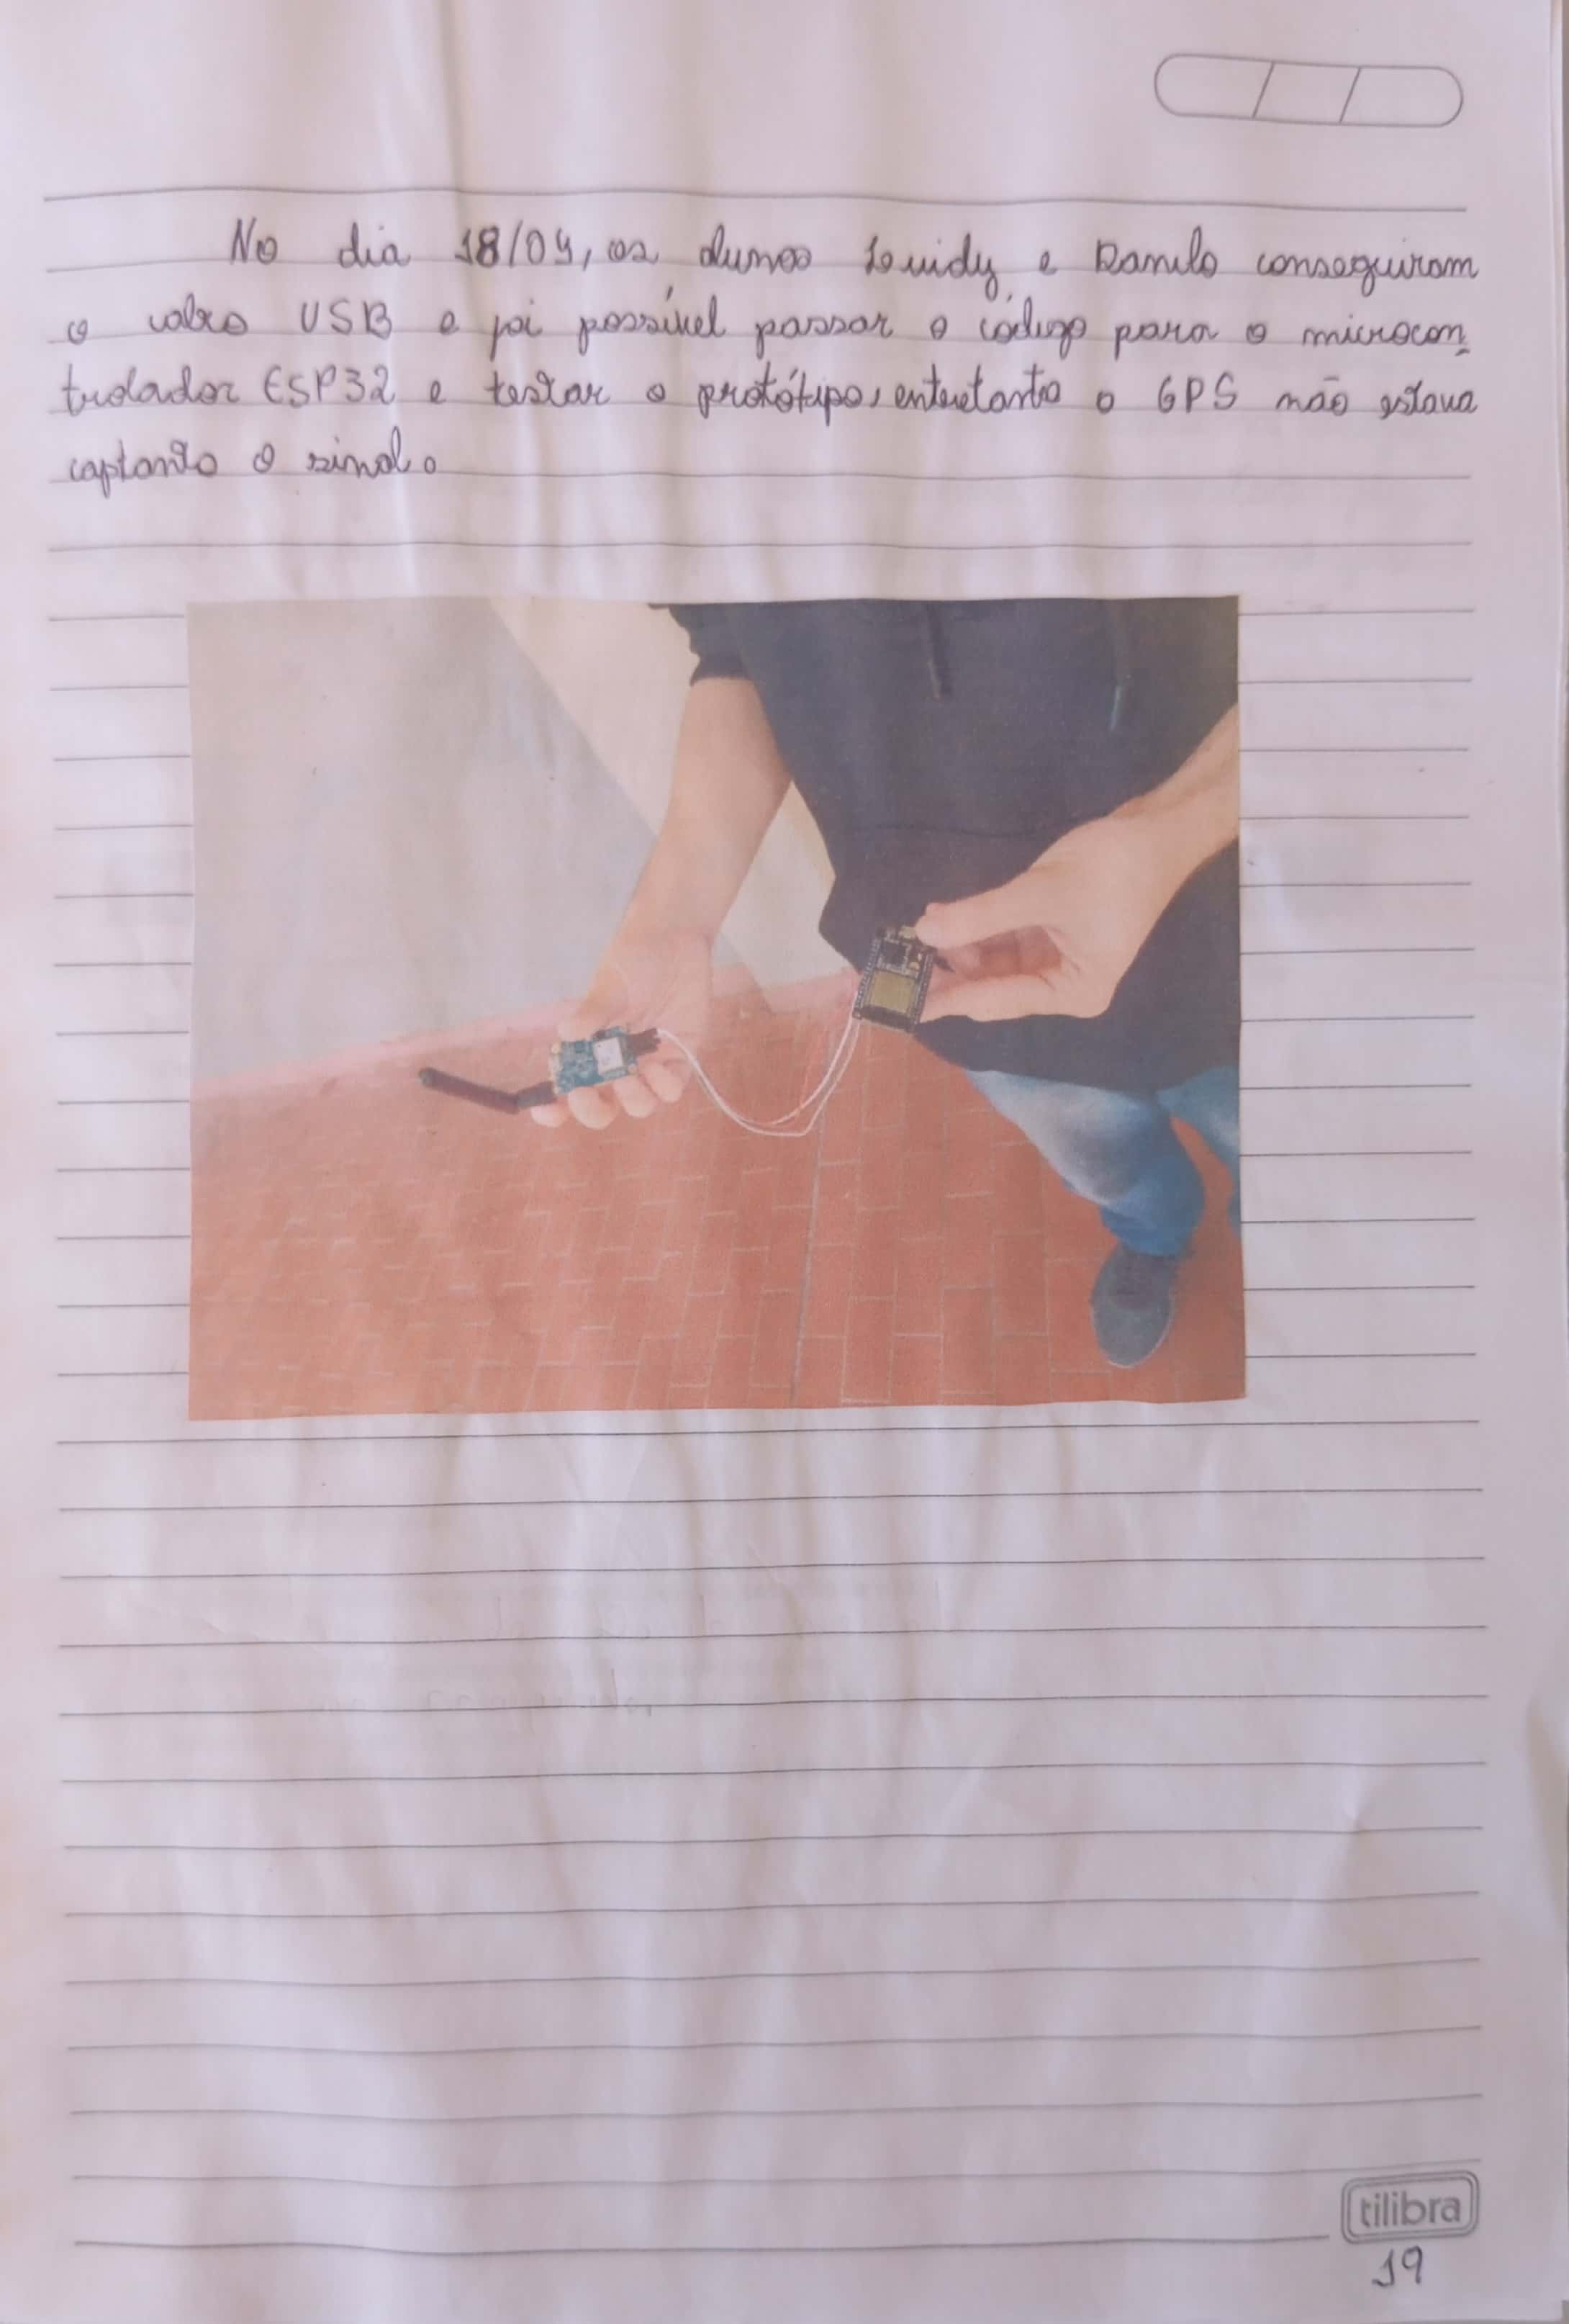 No dia 18/04, os alunos Louidy e Danilo conseguiram
o cabo USB e foi possível passar o código para o microcon
trolador ESP32 e testar o protótipo, entretanto o GPS não estava
captanto o sinal.
tilibra
19